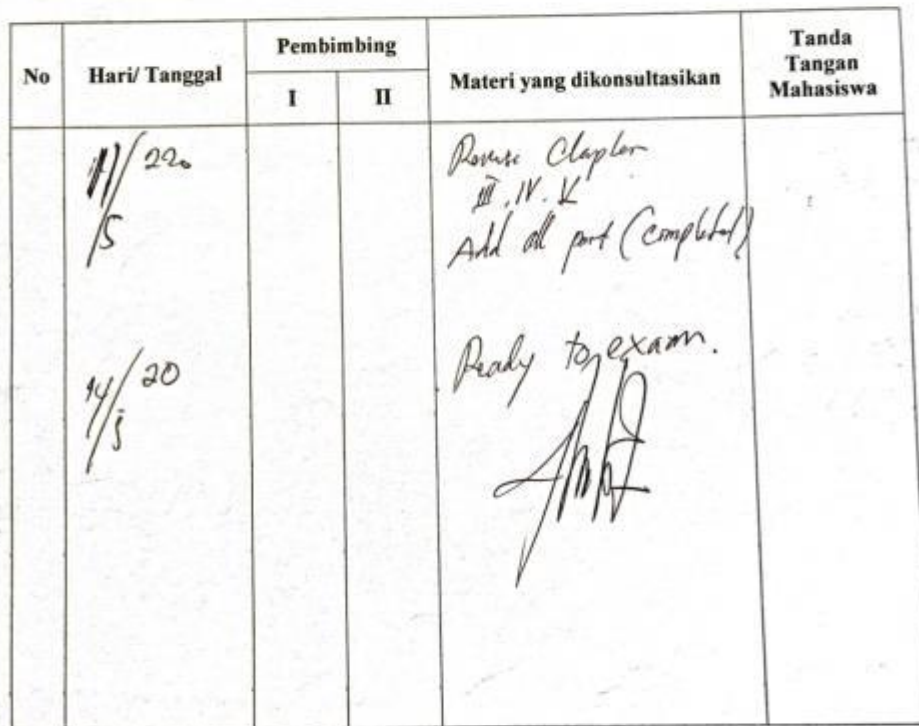 No
Hari/ Tanggal
Pembimbing
I
II
Materi yang dikonsultasikan
Tanda
Tangan
Mahasiswa
/5
Revise Chapter
III. IV. V
Add all part (completed)
14/5 20
Ready to exam.